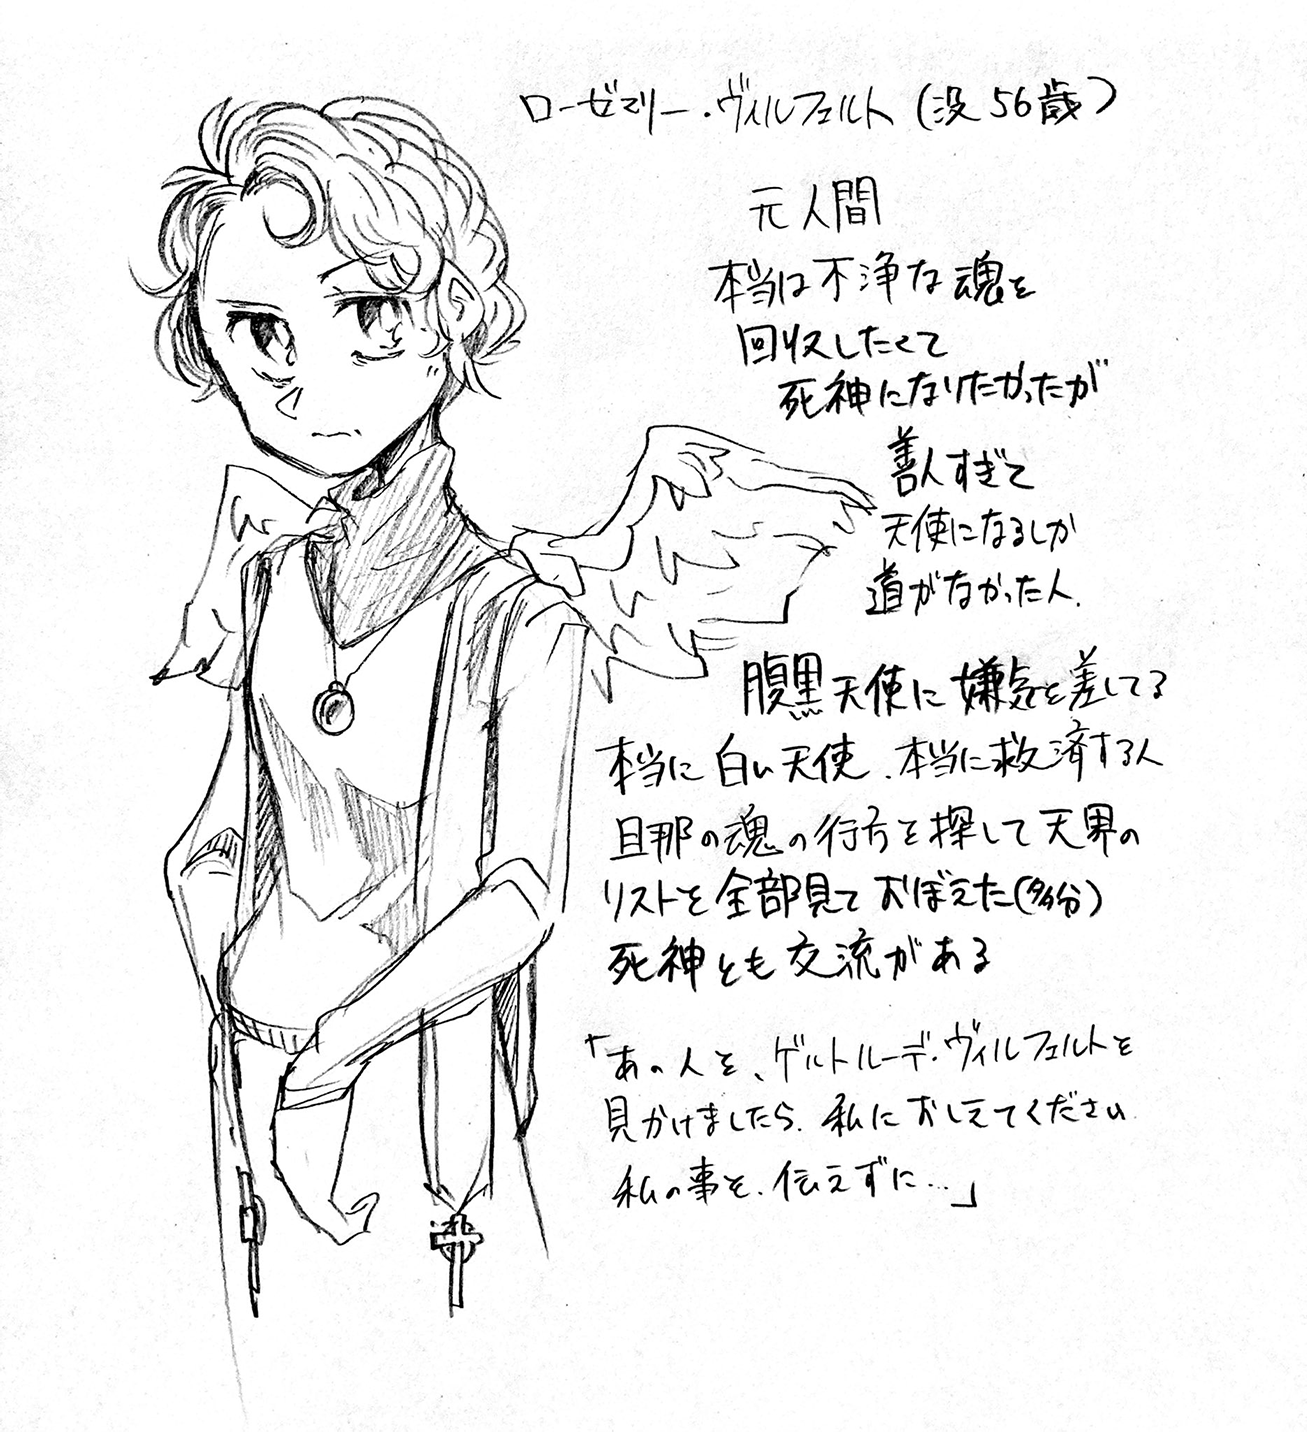 ローゼマリー・ヴィルフェルト(没56歳)
元人間
本当は不浄な魂を
回収したくて
死神になりたかったが
善人すぎて
天使になるしか
道がなかった人.
腹黒天使に嫌気を差してる
本当に白い天使、本当に救済する人
旦那の魂の行方を探して天界の
リストを全部見ておぼえた(多分)
死神とも交流がある
「あの人を、ゲルトルーデ・ヴィルフェルトを
見かけましたら、私におしえてください
私の事を、伝えずに…」